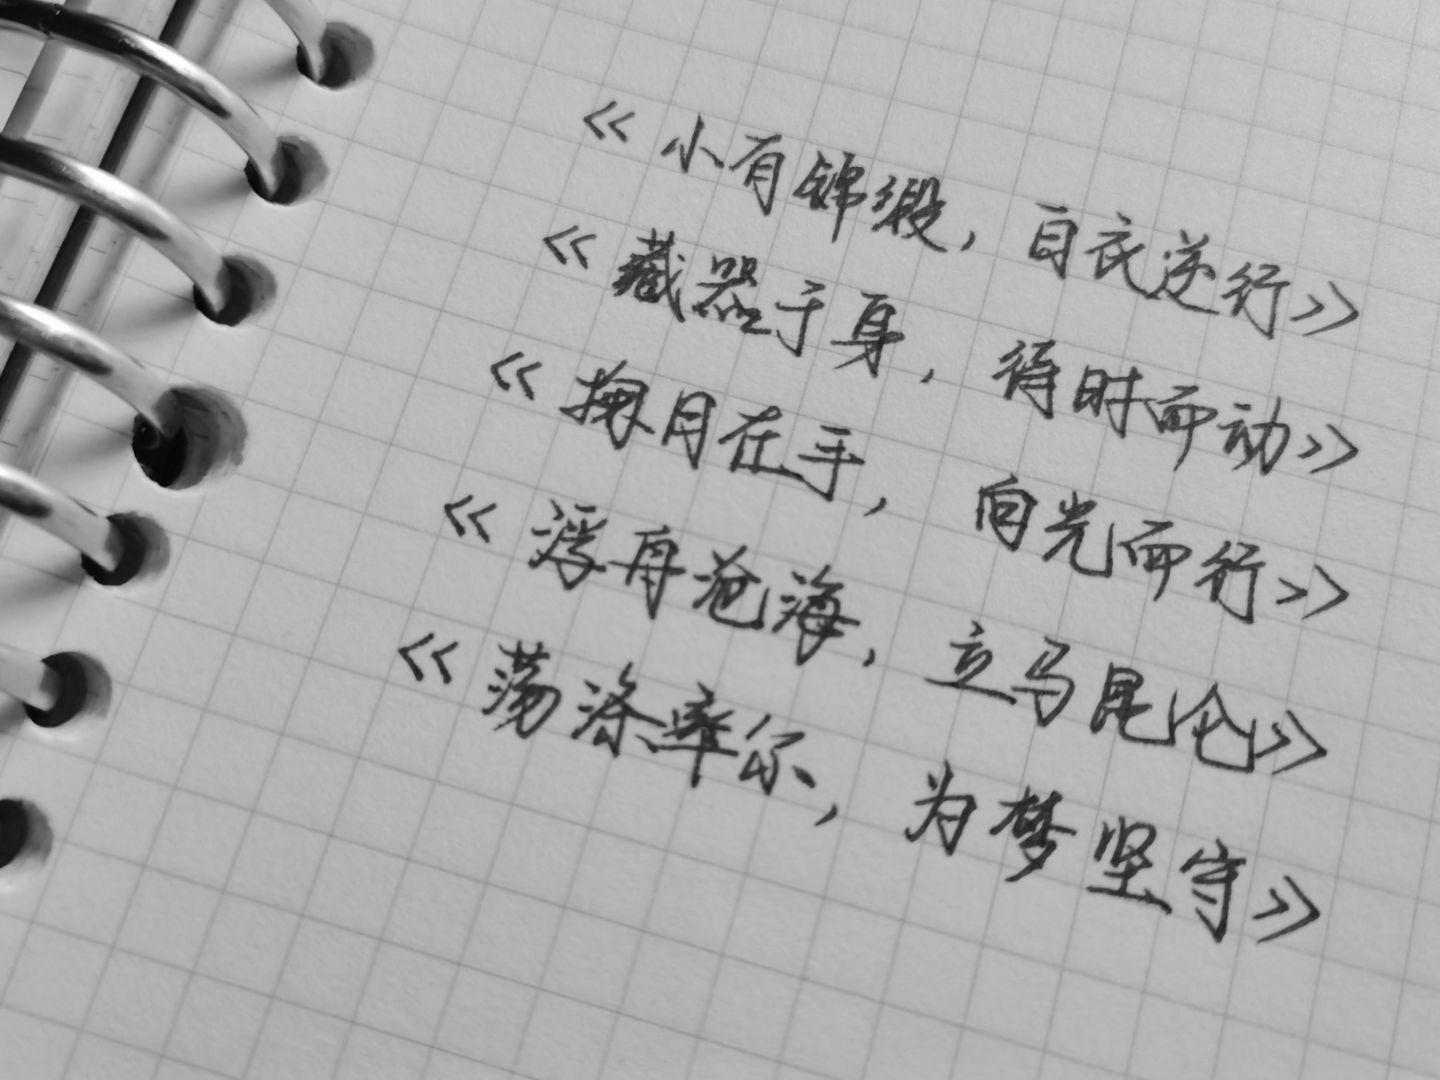 《小有锦缎，白衣逆行》
《藏器于身，待时而动》
《掬月在手，向光而行》
《浮舟沧海，立马昆仑》
《荡涤率尔，为梦坚守》